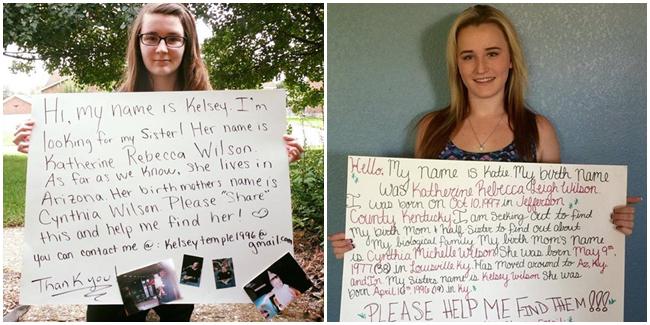 Hi, my name is Kelsey. I'm
looking for my Sister! Her name is
Katherine Rebecca Wilson.
As far as we know, she lives in
Arizona. Her birthmothers name is
Cynthia Wilson. Please "Share"
this and help me find her!
you can contact me @: Kelseytemple1996@
gmail.com
Thank you!
Hello, My name is Katie. My birth name
was Katherine Rebecca Leigh Wilson
I was born on Oct 10, 1997 in Jefferson
County Kentucky. I am seeking out to find
my birth mom & half sister to find out about
my biological family. My birth mom's name
is Cynthia Michelle Wilson. She was born May 9th,
1977 (38) in Louisville Ky. Has moved around to Az, Ky
and In. My Sisters name is Kelsey Wilson She was
born April 16th 1996 (19) in Ky.
PLEASE HELP ME FIND THEM!!!